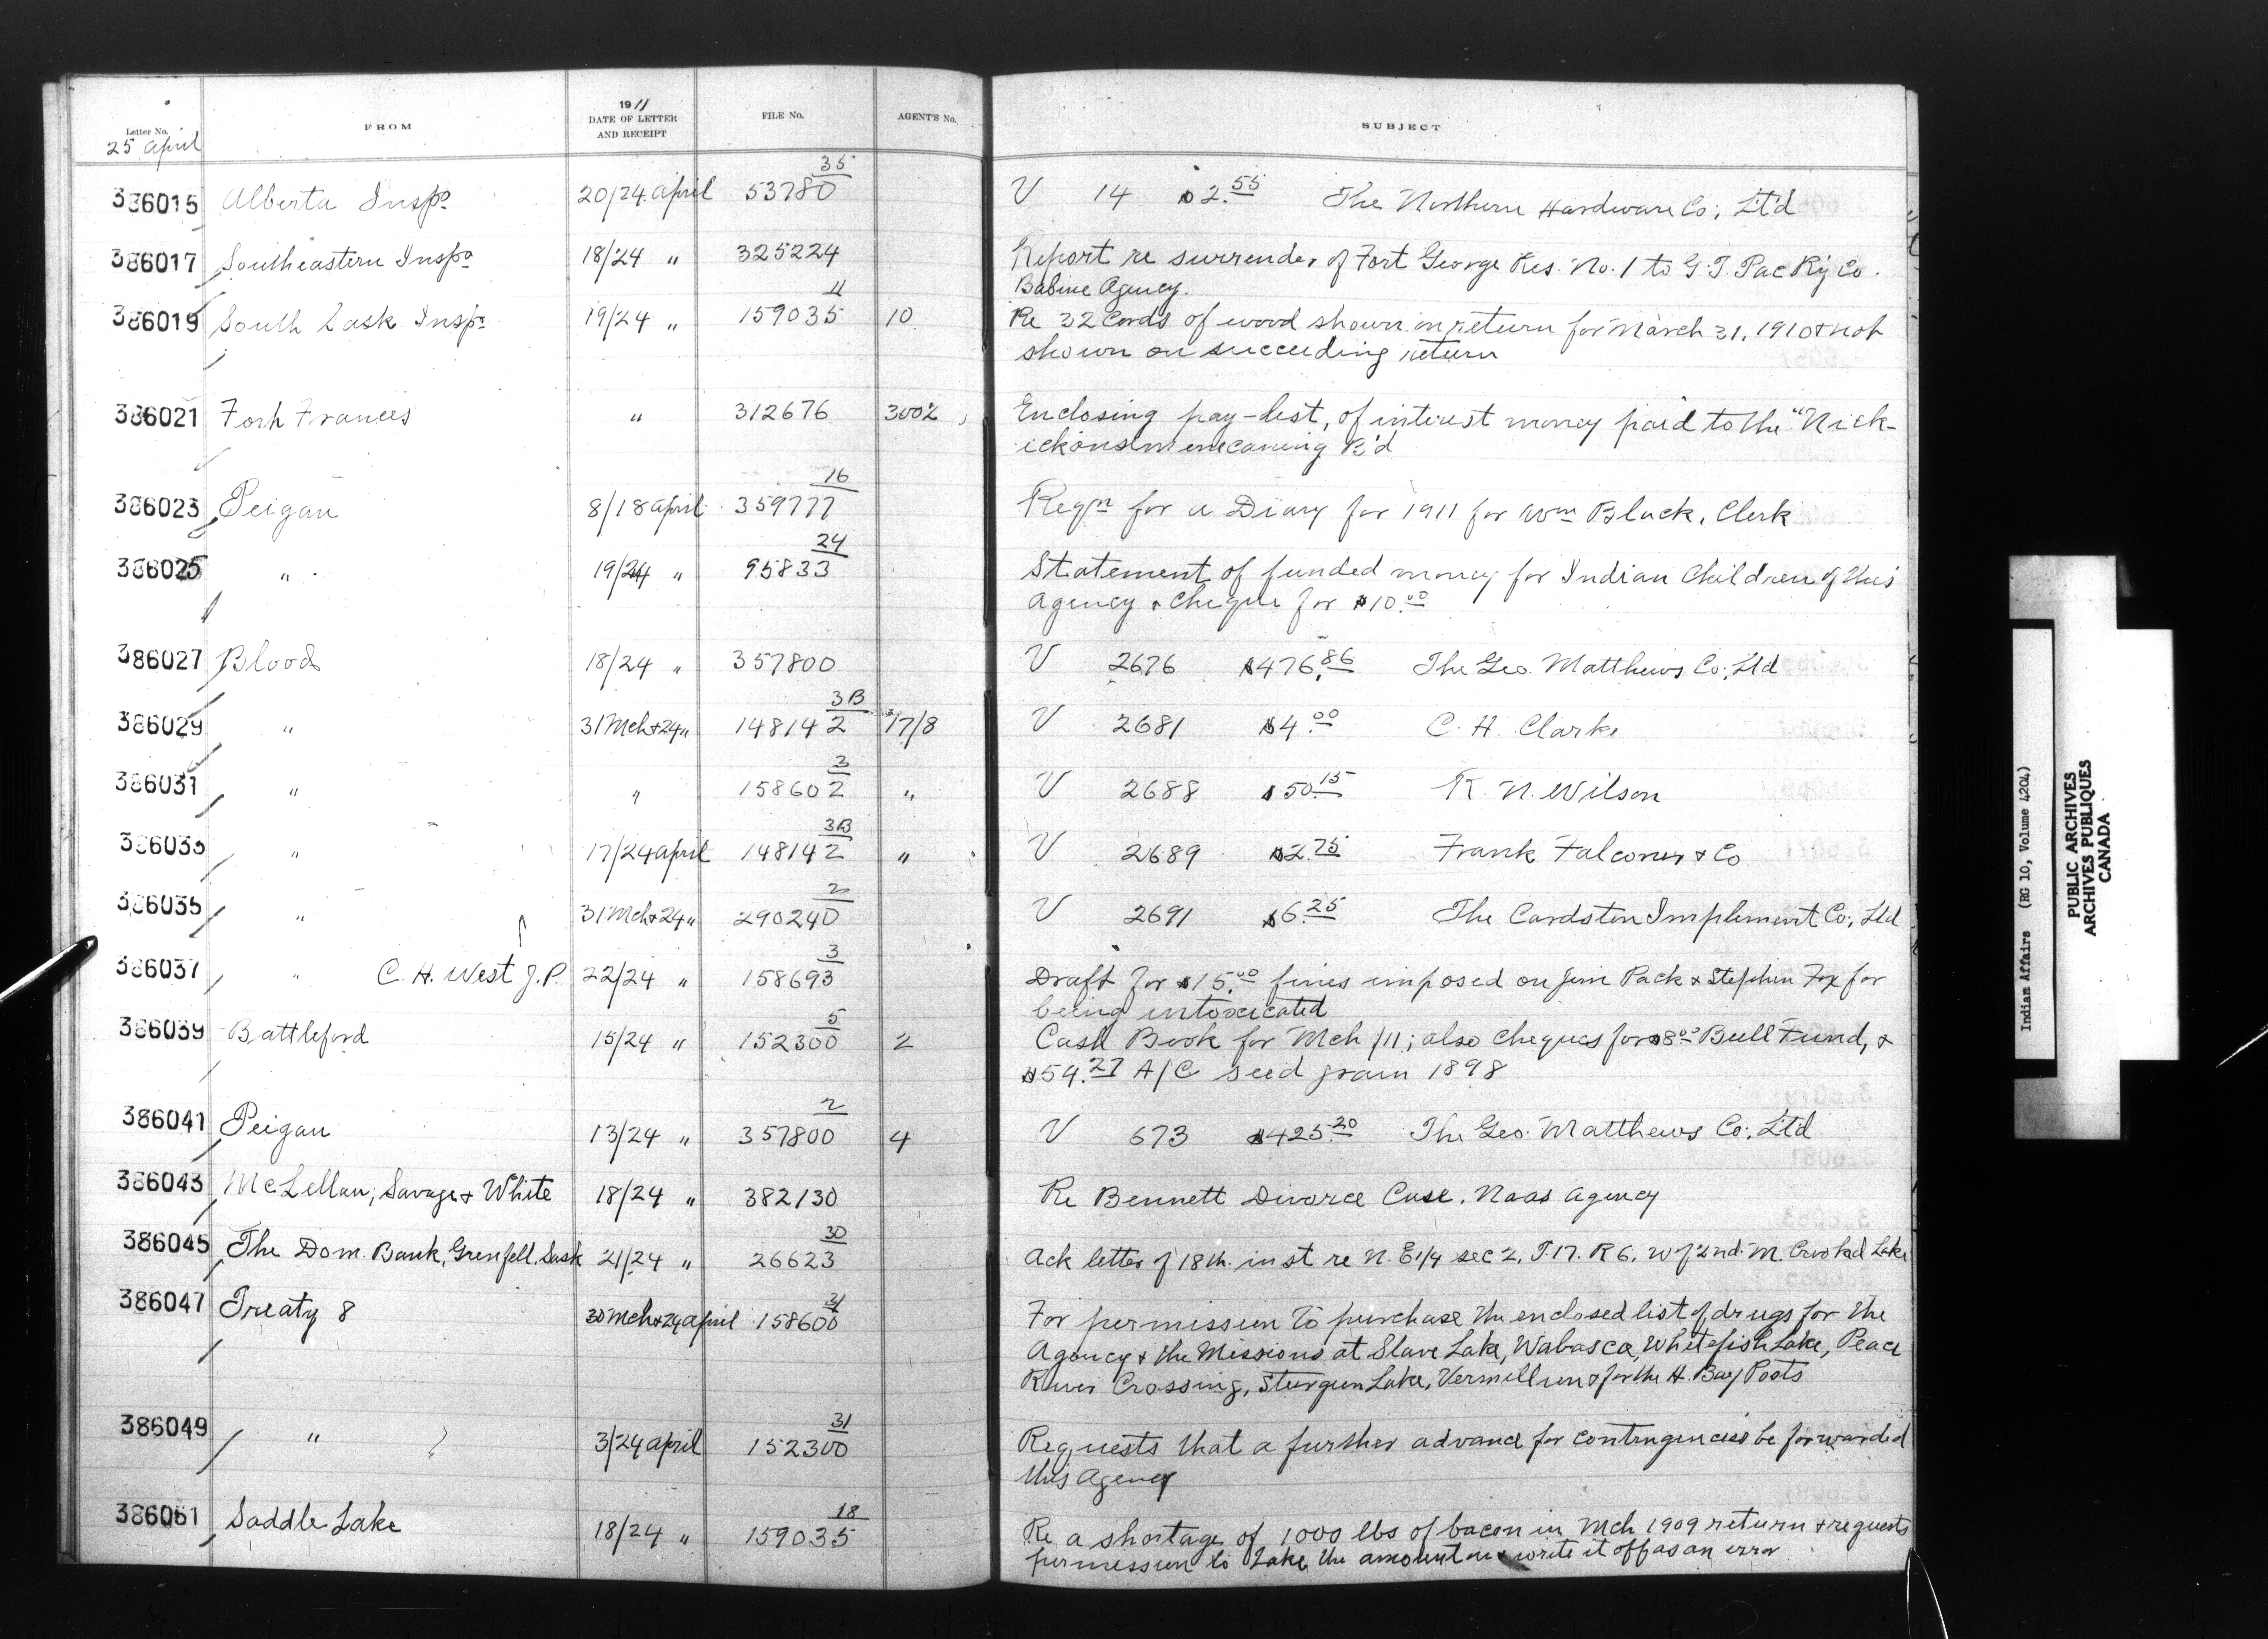 Letter No.
25 April
FROM
1911
DATE OF LETTER
AND RECEIPT
FILE No.
AGENT'S No.
SUBJECT
386015 Alberta Insp° 20/24 April 53780 35 V 14 $2.55 The Northern Hardware Co; Lt'd
386017 Southeastern Insp° 18/24 " 325224 Report re surrender of Fort George Res. No. 1 to G. T. Pac R'y Co.
Babine Agency.
386019 South Sask Insp° 19/24 " 159035 4 10 Re 32 Cords of wood shown in return for March 31, 1910 & not
shown on succeeding return
386021 Forh Frances " 312676 3002 Enclosing pay-list, of interest money paid to the "Nick-
ickonsmenecaning B'd
386023 Peigan 8/18 April 359777 16 Reqn for a Diary for 1911 for Wm Black, Clerk
386025 " 19/24 " 95833 24 Statement of funded money for Indian Children of this
Agency & Cheque for $10.00
386027 Blood 18/24 " 357800 V 2676 $476.86 The Geo. Matthews Co; Ltd
386029 " 31 Mch & 24 " 148142 3B 17/8 V 2681 $4.00 C. H. Clark
386031 " " 158602 3 " V 2688 $50.15 R. N. Wilson
386033 " 17/24 April 148142 3B " V 2689 $2.75 Frank Falconer & Co
386035 " 31 Mch & 24 " 290240 2 V 2691 $6.25 The Cardston Implement Co; Ltd
386037 " C. H. West J.P. 22/24 " 158693 3 Draft for $15.00 fines imposed on Jim Pack & Stephen Fox for
being intoxicated
386039 Battleford 15/24 " 152300 5 2 Cash Book for Mch /11; also cheques for $8.00 Bull Fund, &
$54.27 A/C seed grain 1898
386041 Peigan 13/24 " 357800 2 4 V 673 $425.20 The Geo. Matthews Co; Ltd
386043 McLellan, Savage & White 18/24 " 382130 Re Bennett Divorce Case. Naas Agency
386045 The Dom. Bank, Grenfell, Sask 21/24 " 26623 30 Ack letter of 18th inst re N. E 1/4 sec 2, T.17. R 6. W of 2nd. M. Crooked Lake
386047 Treaty 8 30 Mch & 24 April 158600 31 For permission to purchase the enclosed list of drugs for the
Agency & the Missions at Slave Lake, Wabasca, Whitefish Lake, Peace
River Crossing, Sturgeon Lake, Vermillion & for the H. Bay Posts
386049 " 3/24 April 152300 31 Requests that a further advance for contingencies be forwarded
this Agency
386051 Saddle Lake 18/24 " 159035 18 Re a shortage of 1000 lbs of bacon in Mch 1909 return & requests
permission to take the amount on & write it off as an error
Indian Affairs (RG 10, Volume 4204)
PUBLIC ARCHIVES
ARCHIVES PUBLIQUES
CANADA